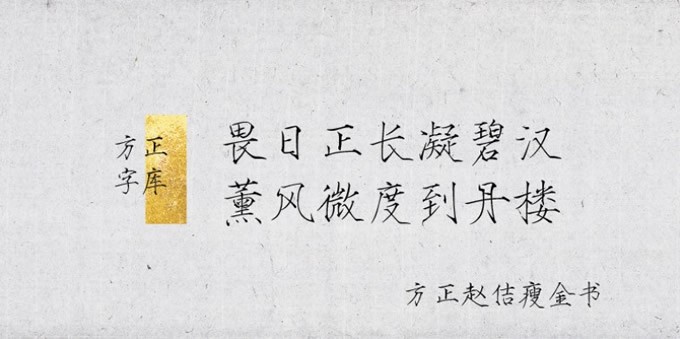 方正
字库
畏日正长凝碧汉
薰风微度到丹楼
方正赵佶瘦金书